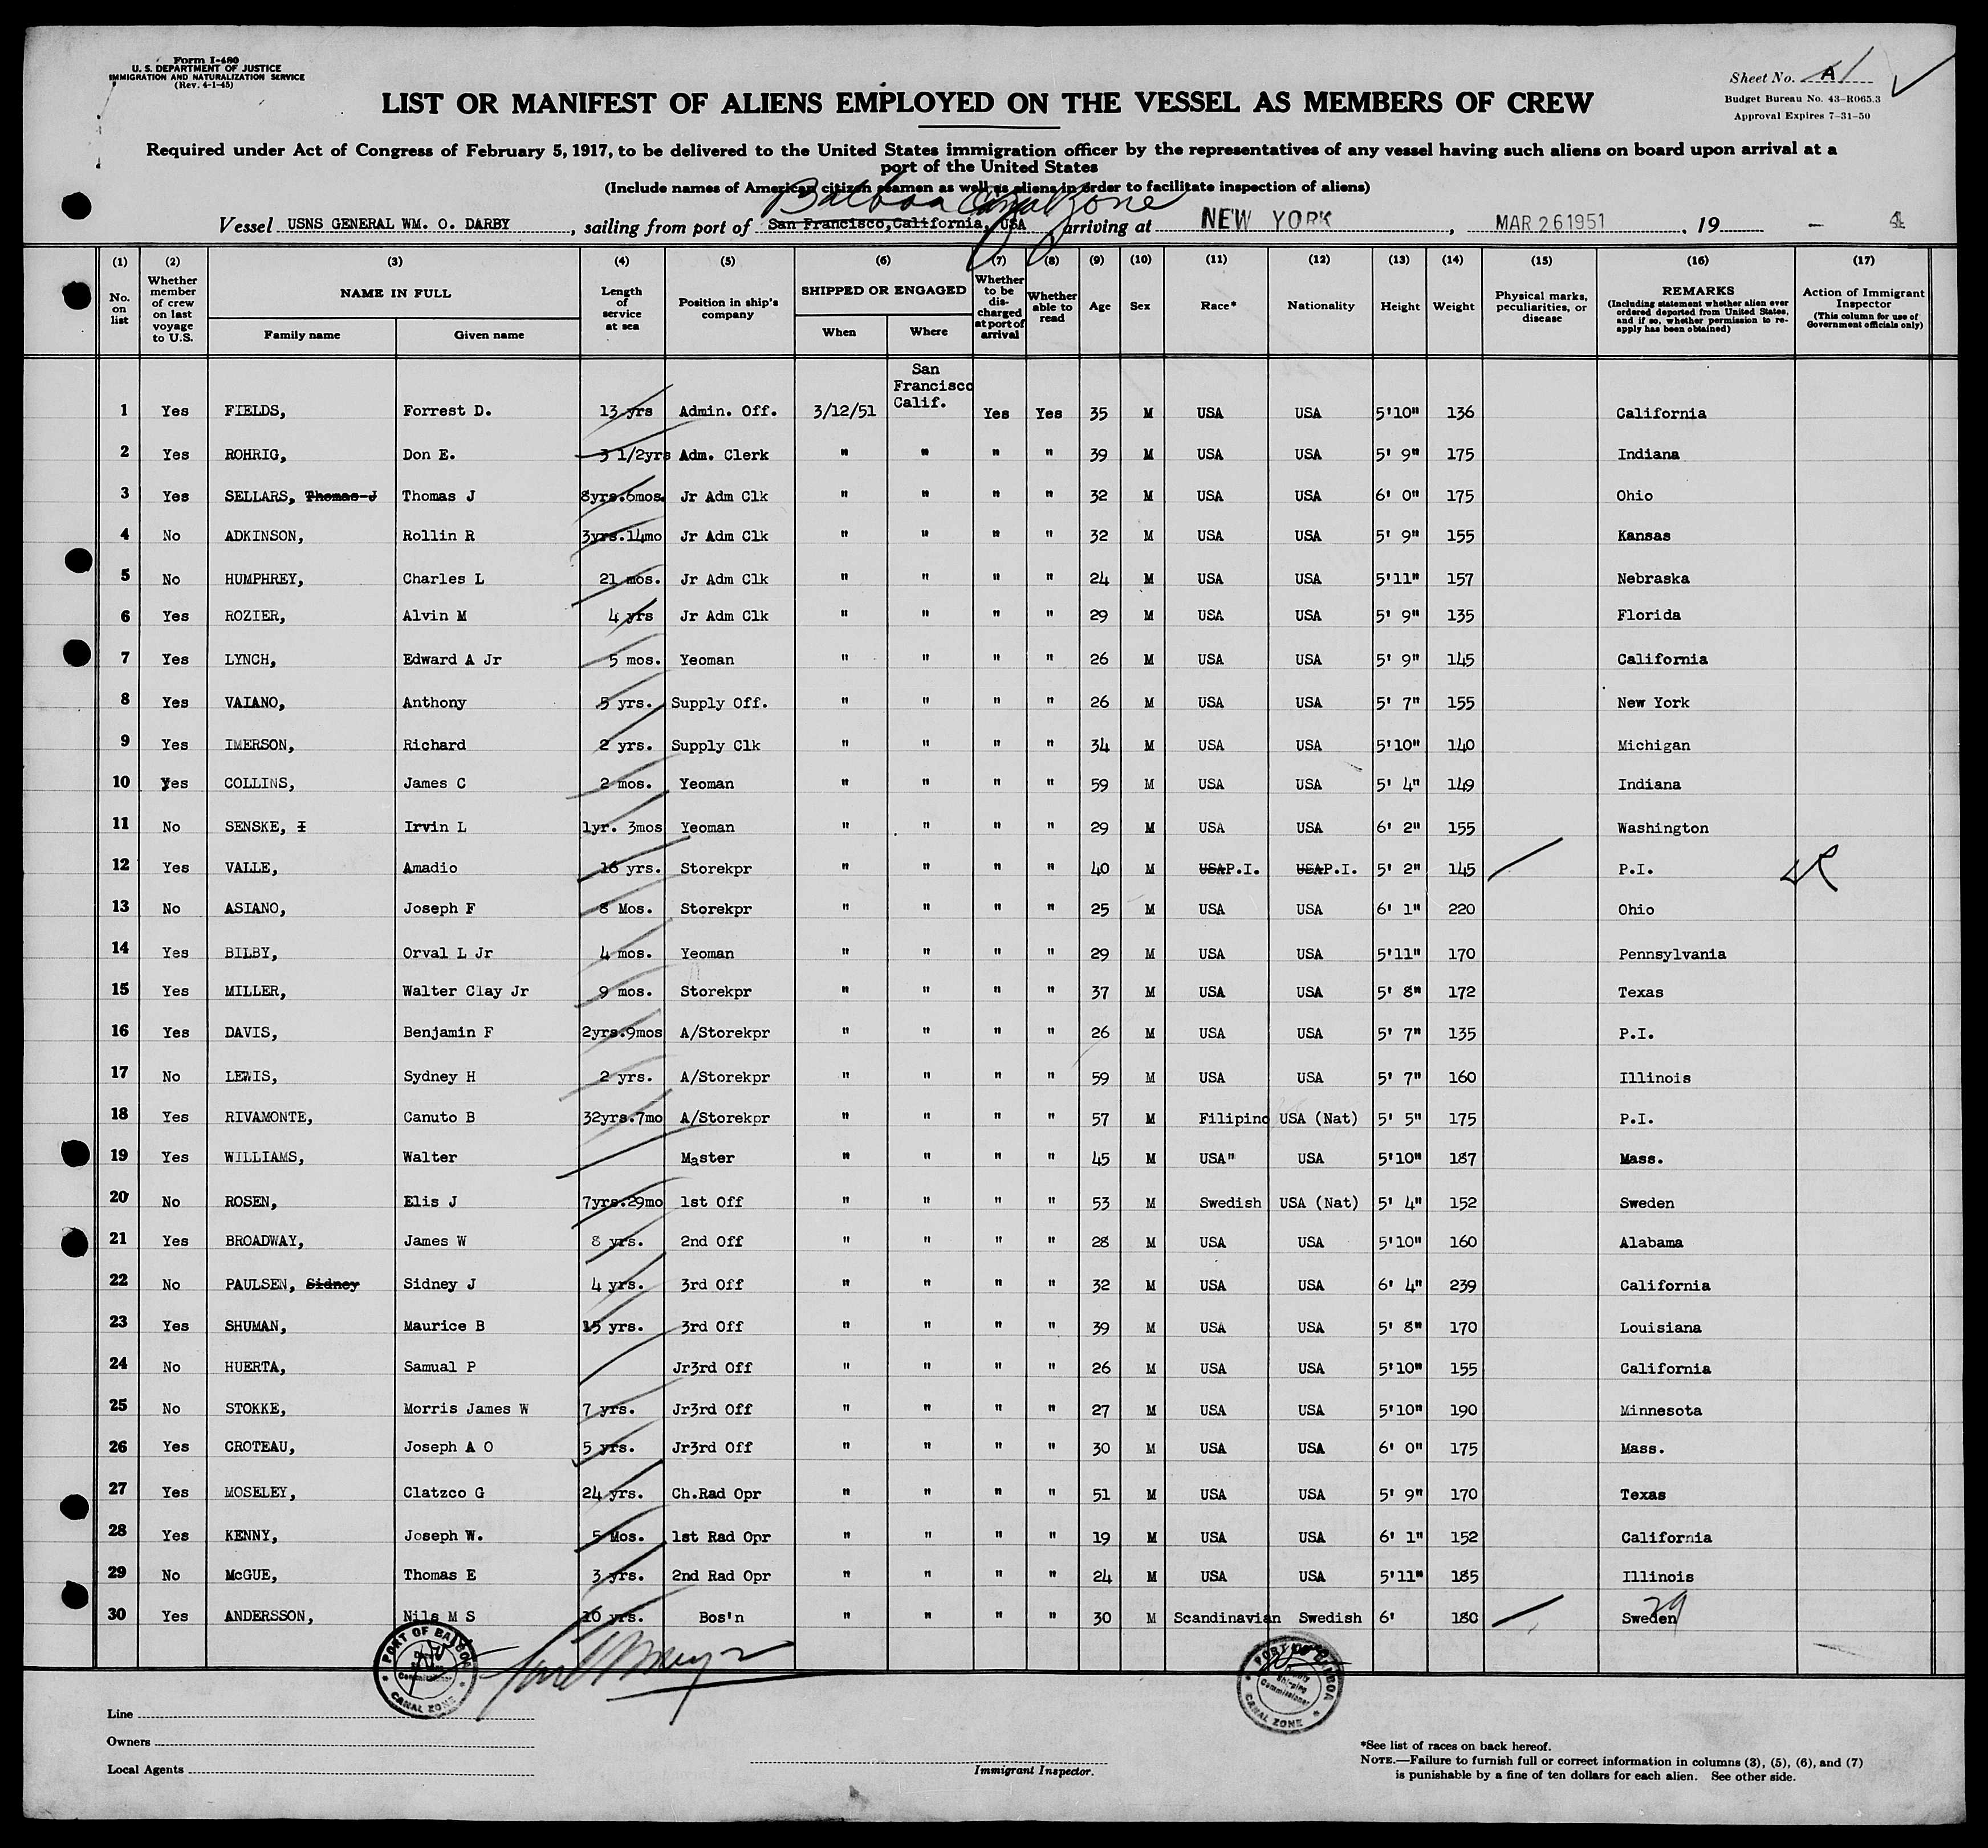 Form I-480
U. S. DEPARTMENT OF JUSTICE
IMMIGRATION AND NATURALIZATION SERVICE
(Rev. 4-1-45)
Sheet No. A 1
Budget Bureau No. 43-R065.3
Approval Expires 7-31-50
LIST OR MANIFEST OF ALIENS EMPLOYED ON THE VESSEL AS MEMBERS OF CREW
Required under Act of Congress of February 5, 1917, to be delivered to the United States immigration officer by the representatives of any vessel having such aliens on board upon arrival at a
port of the United States
(Include names of American citizen seamen as well as aliens in order to facilitate inspection of aliens)
Balboa Canal Zone
Vessel USNS GENERAL WM. O. DARBY, sailing from port of San Francisco, California, USA arriving at NEW YORK, MAR 26 1951, 19 — 4
(1) (2) (3) (4) (5) (6) (7) (8) (9) (10) (11) (12) (13) (14) (15) (16) (17)
No. on list
Whether member of crew on last voyage to U.S.
NAME IN FULL
Family name
Given name
Length of service at sea
Position in ship's company
SHIPPED OR ENGAGED
When
Where
Whether to be discharged at port of arrival
Whether able to read
Age
Sex
Race*
Nationality
Height
Weight
Physical marks, peculiarities, or disease
REMARKS
(Including statement whether alien ever ordered deported from United States, and if so, whether permission to re-apply has been obtained)
Action of Immigrant Inspector
(This column for use of Government officials only)
1 Yes FIELDS, Forrest D. 13 yrs Admin. Off. 3/12/51 San Francisco Calif. Yes Yes 35 M USA USA 5'10" 136 California
2 Yes ROHRIG, Don E. 3 1/2yrs Adm. Clerk " " " " 39 M USA USA 5' 9" 175 Indiana
3 Yes SELLARS, Thomas J Thomas J 8yrs.6mos. Jr Adm Clk " " " " 32 M USA USA 6' 0" 175 Ohio
4 No ADKINSON, Rollin R 3yrs.14mo Jr Adm Clk " " " " 32 M USA USA 5' 9" 155 Kansas
5 No HUMPHREY, Charles L 21 mos. Jr Adm Clk " " " " 24 M USA USA 5'11" 157 Nebraska
6 Yes ROZIER, Alvin M 4 yrs Jr Adm Clk " " " " 29 M USA USA 5' 9" 135 Florida
7 Yes LYNCH, Edward A Jr 5 mos. Yeoman " " " " 26 M USA USA 5' 9" 145 California
8 Yes VAIANO, Anthony 5 yrs. Supply Off. " " " " 26 M USA USA 5' 7" 155 New York
9 Yes IMERSON, Richard 2 yrs. Supply Clk " " " " 34 M USA USA 5'10" 140 Michigan
10 Yes COLLINS, James C 2 mos. Yeoman " " " " 59 M USA USA 5' 4" 149 Indiana
11 No SENSKE, I Irvin L 1yr. 3mos Yeoman " " " " 29 M USA USA 6' 2" 155 Washington
12 Yes VALLE, Amadio 16 yrs. Storekpr " " " " 40 M USA P.I. USA P.I. 5' 2" 145 P.I.
13 No ASIANO, Joseph F 8 Mos. Storekpr " " " " 25 M USA USA 6' 1" 220 Ohio
14 Yes BILBY, Orval L Jr 4 mos. Yeoman " " " " 29 M USA USA 5'11" 170 Pennsylvania
15 Yes MILLER, Walter Clay Jr 9 mos. Storekpr " " " " 37 M USA USA 5' 8" 172 Texas
16 Yes DAVIS, Benjamin F 2yrs.9mos A/Storekpr " " " " 26 M USA USA 5' 7" 135 P.I.
17 No LEWIS, Sydney H 2 yrs. A/Storekpr " " " " 59 M USA USA 5' 7" 160 Illinois
18 Yes RIVAMONTE, Canuto B 32yrs.7mo A/Storekpr " " " " 57 M Filipino USA (Nat) 5' 5" 175 P.I.
19 Yes WILLIAMS, Walter Master " " " " 45 M USA" USA 5'10" 187 Mass.
20 No ROSEN, Elis J 7yrs.29mo 1st Off " " " " 53 M Swedish USA (Nat) 5' 4" 152 Sweden
21 Yes BROADWAY, James W 8 yrs. 2nd Off " " " " 28 M USA USA 5'10" 160 Alabama
22 No PAULSEN, Sidney Sidney J 4 yrs. 3rd Off " " " " 32 M USA USA 6' 4" 239 California
23 Yes SHUMAN, Maurice B 15 yrs. 3rd Off " " " " 39 M USA USA 5' 8" 170 Louisiana
24 No HUERTA, Samual P Jr3rd Off " " " " 26 M USA USA 5'10" 155 California
25 No STOKKE, Morris James W 7 yrs. Jr3rd Off " " " " 27 M USA USA 5'10" 190 Minnesota
26 Yes CROTEAU, Joseph A O 5 yrs. Jr3rd Off " " " " 30 M USA USA 6' 0" 175 Mass.
27 Yes MOSELEY, Clatzco G 24 yrs. Ch.Rad Opr " " " " 51 M USA USA 5' 9" 170 Texas
28 Yes KENNY, Joseph W. 5 Mos. 1st Rad Opr " " " " 19 M USA USA 6' 1" 152 California
29 No McGUE, Thomas E 3 yrs. 2nd Rad Opr " " " " 24 M USA USA 5'11" 185 Illinois
30 Yes ANDERSSON, Nils M S 10 yrs. Bos'n " " " " 30 M Scandinavian Swedish 6' 180 Sweden
29
PORT OF BALBOA
CANAL ZONE
PORT OF BALBOA
Deputy Shipping Commissioner
CANAL ZONE
Line
Owners
Local Agents
Immigrant Inspector.
*See list of races on back hereof.
NOTE.—Failure to furnish full or correct information in columns (3), (5), (6), and (7)
is punishable by a fine of ten dollars for each alien. See other side.